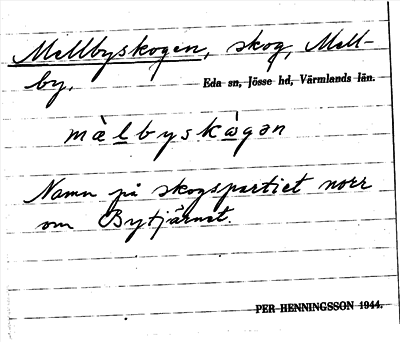 Mellbyskogen, skog, Mell-
by.
Eda sn, Jösse hd, Värmlands län.
mὰlbyskὼgən
Namn på skogspartiet norr
om Bytjärnet.
PER HENNINGSSON 1944.